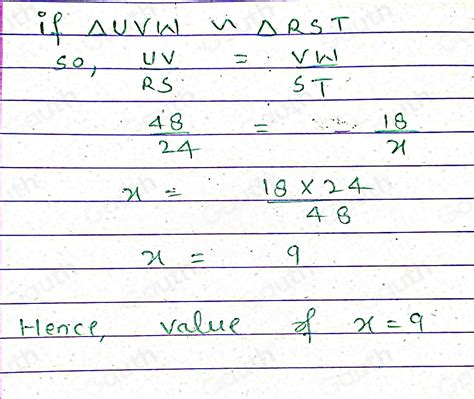 if △UVW ~ △RST
so, UV/RS = VW/ST
48/24 = 18/x
x = 18 × 24/48
x = 9
Hence, value of x = 9